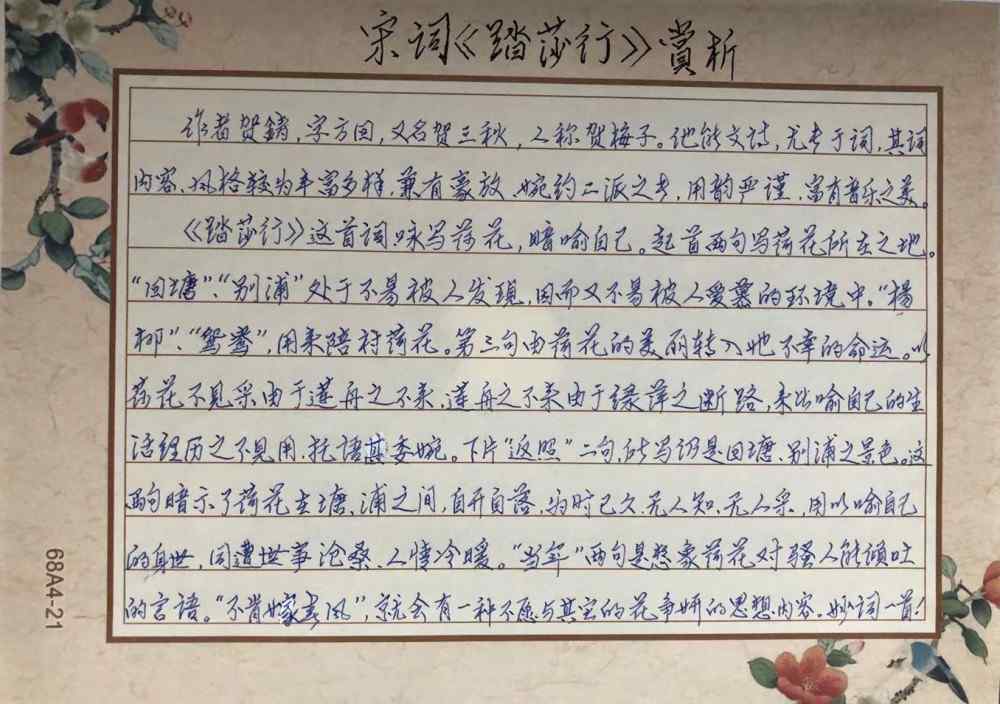 宋词《踏莎行》赏析
作者贺铸，字方回，又名贺三秋，人称贺梅子。他能文诗，尤长于词，其词
内容、风格较为丰富多样，兼有豪放、婉约二派之长，用韵严谨，富有音乐之美。
《踏莎行》这首词咏写荷花，暗喻自己。起首两句写荷花所在之地。
“回塘”、“别浦”处于不易被人发现，因而又不易被人爱慕的环境中。“楊
柳”、“鸳鸯”，用来陪衬荷花。第三句由荷花的美丽转入她不幸的命运。以
荷花不见采由于莲舟之不来，莲舟之不来由于绿萍之断路，来比喻自己的生
活经历之不见用，托语甚委婉。下片“返照”二句，所写仍是回塘、别浦之景色。这
两句暗示了荷花在塘、浦之间，自开自落，为时已久，无人知、无人采，用以喻自己
的身世，同遭世事沧桑、人情冷暖。“当年”两句是想象荷花对骚人能倾吐
的言语。“不肯嫁春风”，就会有一种不愿与其它的花争妍的思想内容。妙词一首！
68A4-21